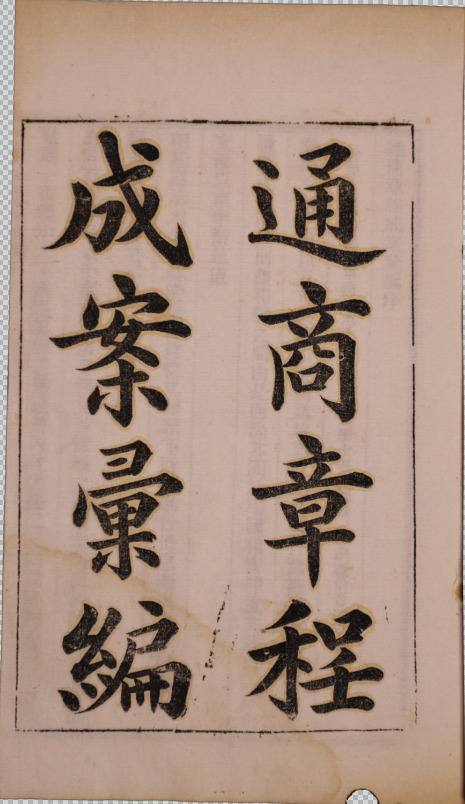 通商章程
成案彙編